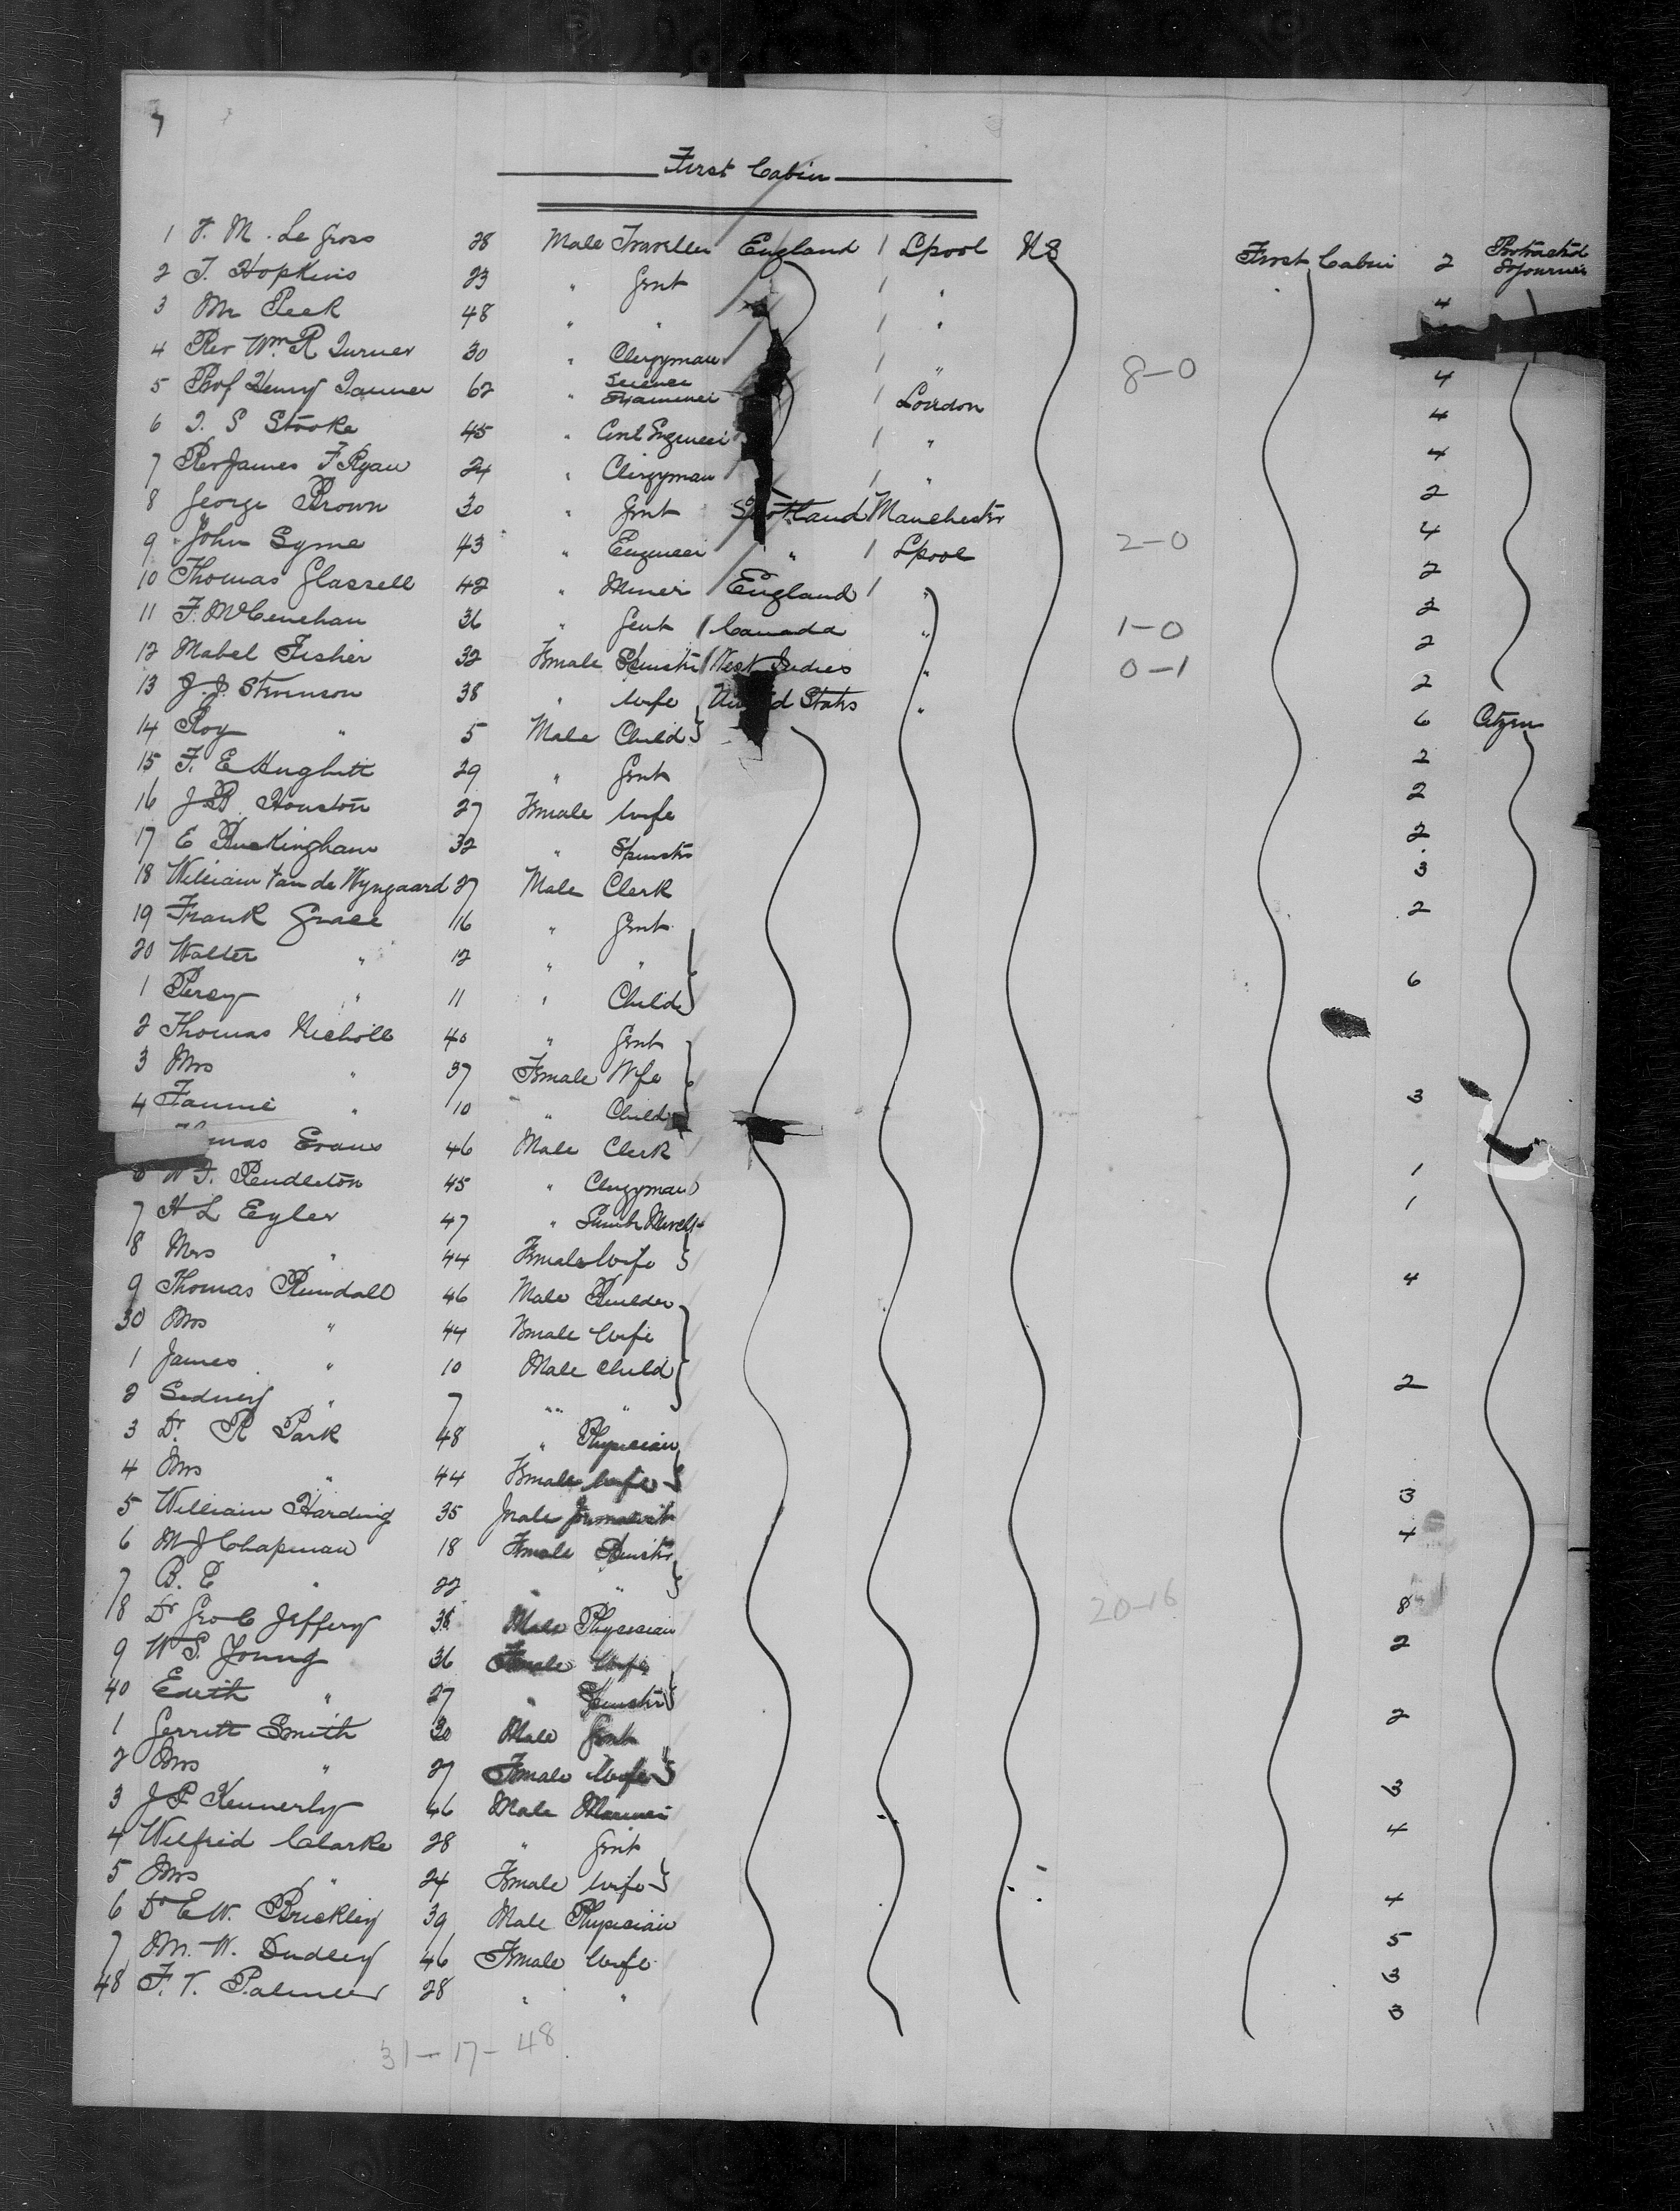 7
First Cabin
1 F. M. Le Gros 28 Male Traveller England 1 Lpool U S First Cabin 2 Protracted Sojourner
2 T. Hopkins 23 " Gent 1 " 4
3 Mr Peek 48 " " 1 "
4 Rev Wm. R Turner 30 " Clergyman 1 " 8-0
5 Prof Henry Tanner 62 " Science Examiner 1 London 4
6 T. S Stooke 45 " Civil Engineer 1 " 4
7 Rev James F Ryan 24 " Clergyman 1 " 4
8 George Brown 30 " Gent Scotland Manchester 2
9 John Syme 43 " Engineer " 1 Lpool 2-0 4
10 Thomas Glassell 42 " Miner England 1 " 2
11 F. McLenehan 36 " Gent 1 Canada " 1-0 2
12 Mabel Fisher 32 Female Spinster 1 West Indies " 0-1 2
13 J. J. Stevenson 38 " Wife United States " 2
14 Roy " 5 Male Child 6 Citizen
15 F. E Hughitt 29 " Gent 2
16 J B Houston 27 Female Wife 2
17 E Buckingham 32 " Spinster 2
18 William Van de Wyngaard 27 Male Clerk 3
19 Frank Grace 16 " Gent 2
20 Walter " 12 " "
1 Percy " 11 " Child 6
2 Thomas Nicholl 40 " Gent
3 Mrs " 37 Female Wife
4 Fannie " 10 " Child 3
mas Evans 46 Male Clerk
6 W F. Pendleton 45 " Clergyman 1
7 H L Eyler 47 " Lumber Mercht 1
8 Mrs " 44 Female Wife
9 Thomas Rundall 46 Male Builder 4
30 Mrs " 44 Female Wife
1 James " 10 Male Child
2 Sidney " 7 " " " 2
3 Dr. R Park 48 " Physician
4 Mrs " 44 Female Wife
5 William Harding 35 Male Journalist 3
6 M J Chapman 18 Female Spinster 4
7 B. E " 22 " "
8 Dr Geo C Jeffery 38 Male Physician 20-16 8
9 W S. Young 36 Female Wife 2
40 Edith " 27 " Spinster
1 Gerritt Smith 30 Male Gent 2
2 Mrs " 27 Female Wife
3 J P Kennerly 46 Male Mariner 3
4 Wilfrid Clarke 28 " Gent 4
5 Mrs " 24 Female Wife
6 Dr E W. Brickley 39 Male Physician 4
7 M. W. Dudley 46 Female Wife 5
48 F. T. Palmer 28 " " 3
3
31-17-48